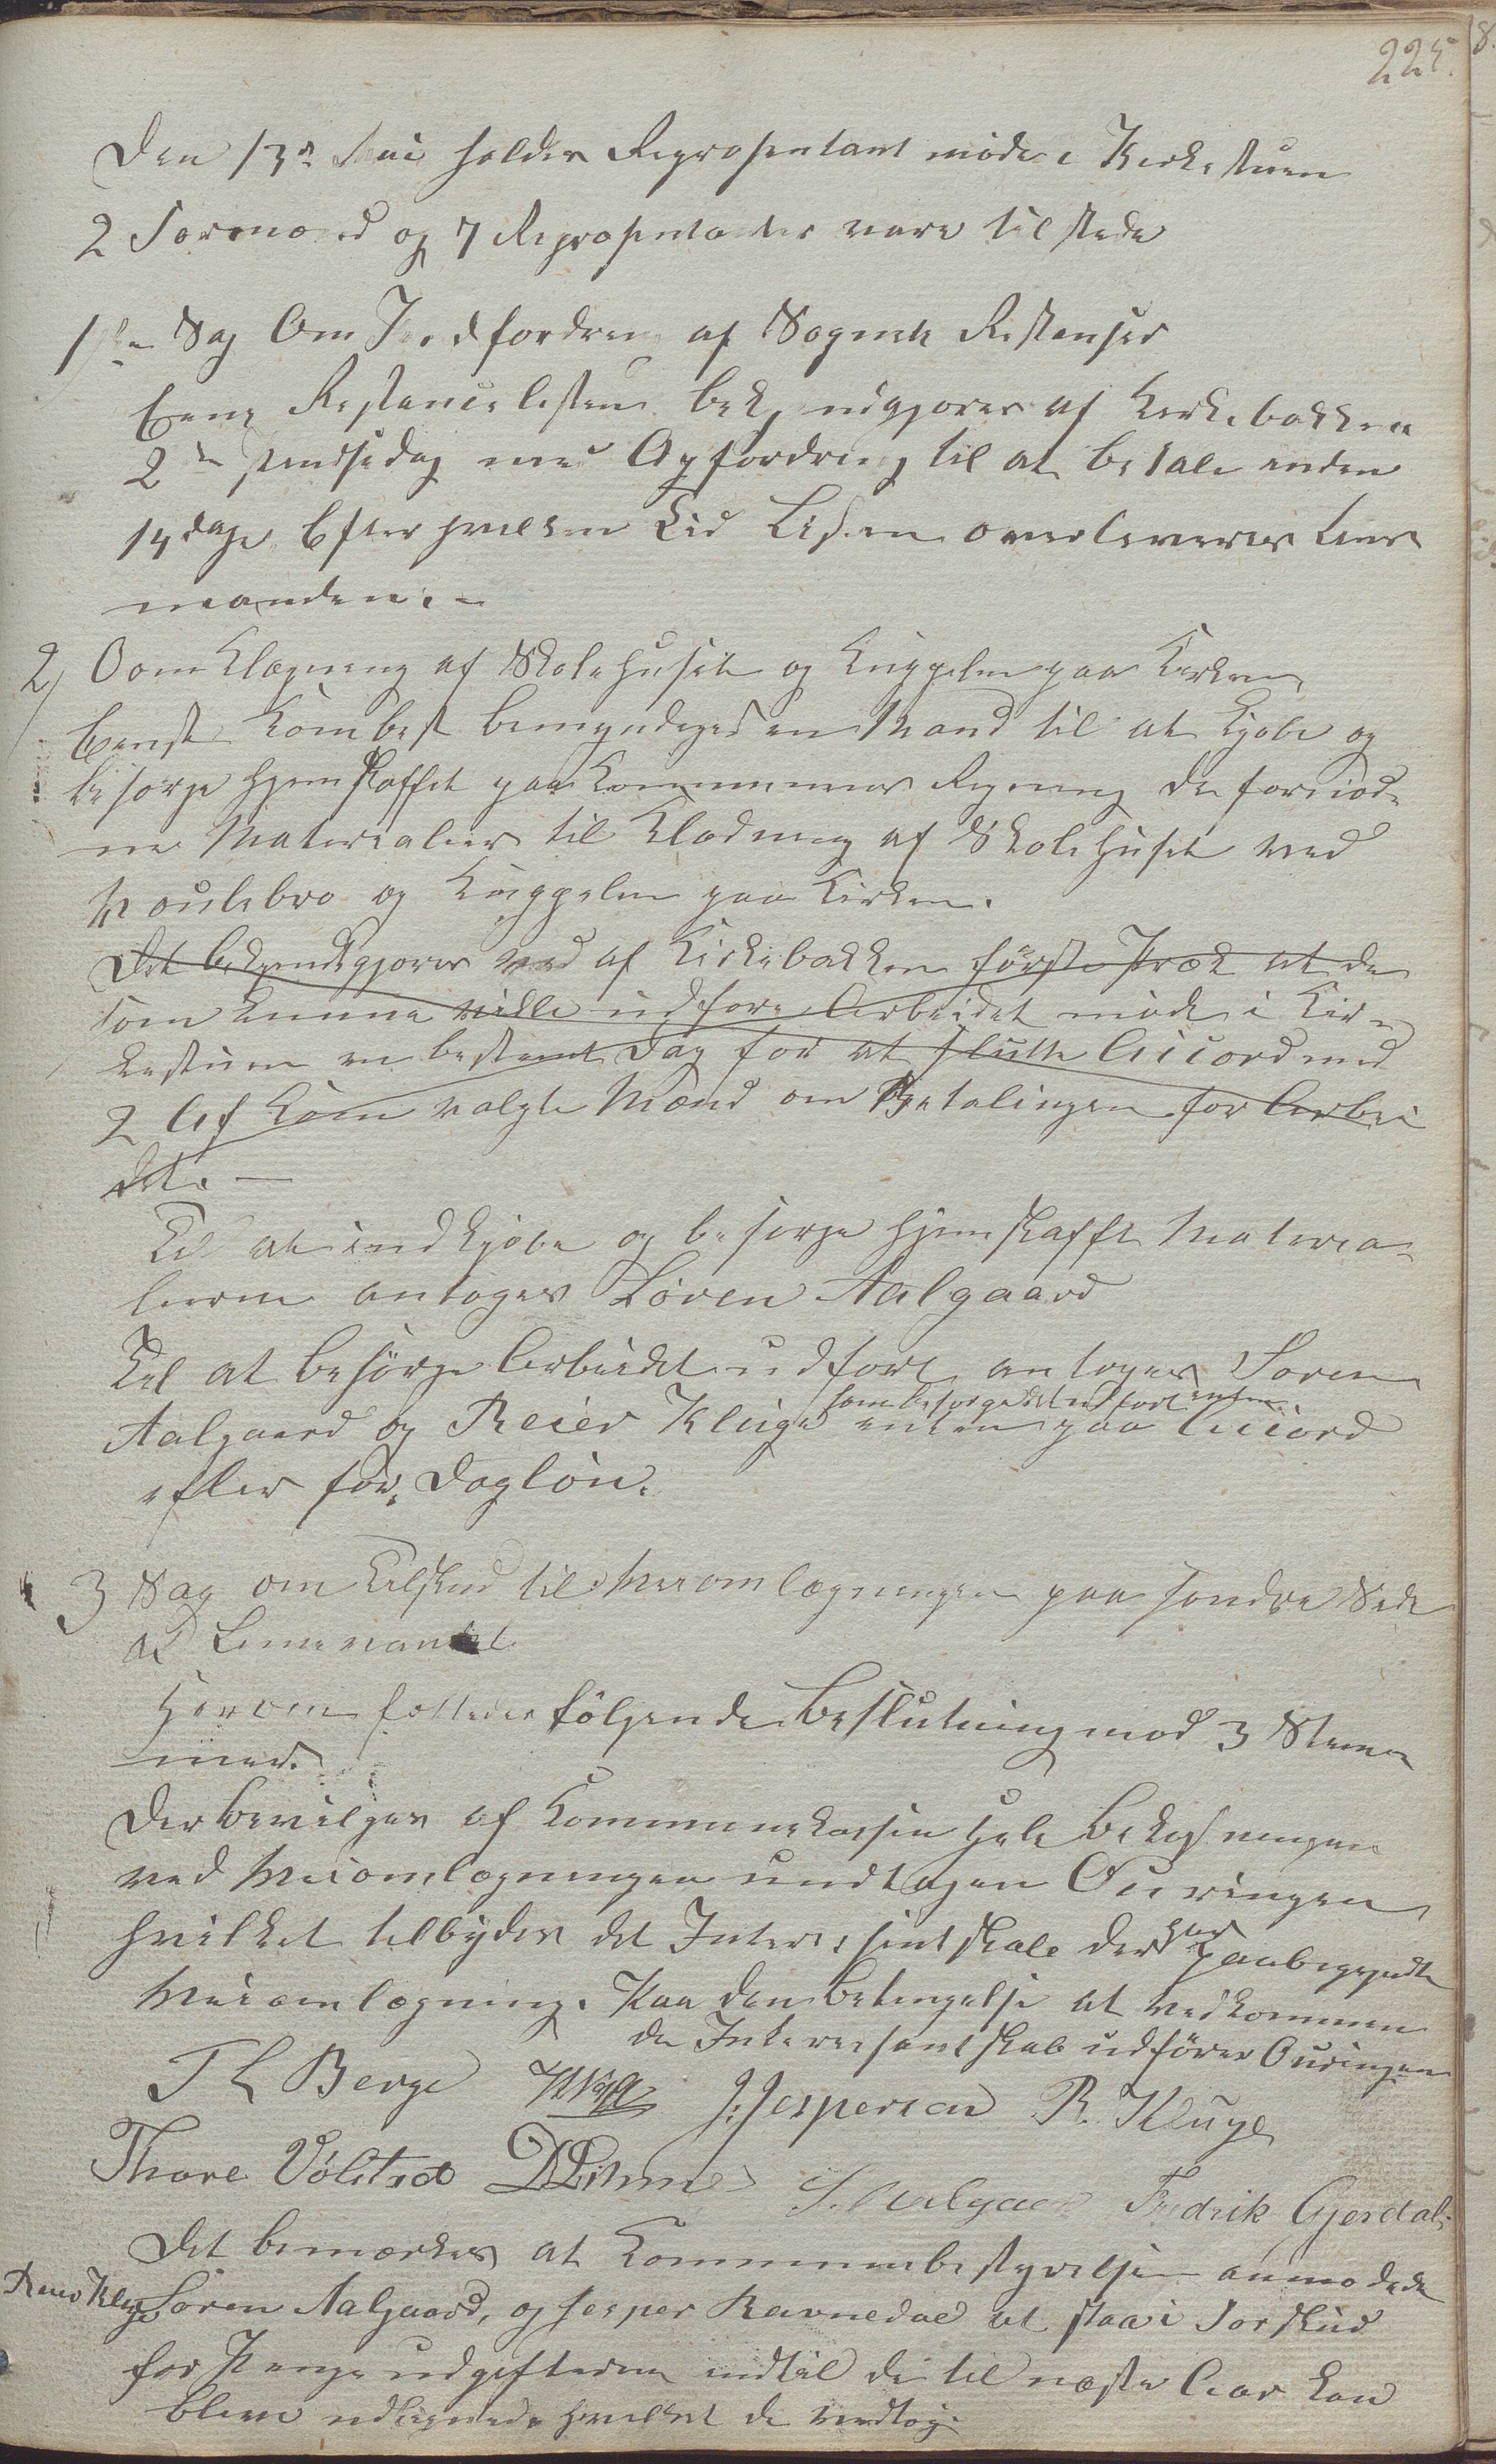 225.
Den 13de Mai holdes Repræsentant møde i Kirkestuen
2 Formænd og 7 Repræsentanter vare tilstede
1ste Sag Om Inddfordring af Sognets Restanser
Eenig Restancelisten bekjendtgjøres af Kirkebakken
2den pindsedag med Opfordring til at betale inden
14 dage Efter hvilken Tid Listen overleveres Lens
manden. -
2) Om Klædning af Skolehuset og Kuppelen paa Kirken
Eenst Kombest bemyndiges en Mand til at Kjøbe og
besørge hjemskaffet paa Kommunens Regning de fornød-
ne Materialier til Klædning af Skolehuset ved
Moulebro og Kuppelen paa Kirken.
Det bekjendtgjøres ved af Kirkebakken første Præk at de
som kunne ville udføre Arbeidet møde i Kir-
kestuen en bestemt Dag for at slutte Accord med
2 Af Kom valgte Mænd om Betalingen for Arbei
det. —
Til at indkjøbe og besørge hjemskaffet Materia-
lierne antoges Søren Aalgaard
Til at besørge Arbeidet udført antoges Søren
som besørge det udført enten
Aalgaard og Reier Kluge enten paa Accord
eller for Dagløn.
3 Sag om Tilskud til Veiomlægningen paa søndre Side
af Limevandet
Herom fattedes følgende Beslutning mod 3 Stem-
mer.
Der bevilges af Kommunekassen hele Bekostningen
ved Veiomlægningen undtagen Ouringen
hvilket tilbydes det Interessentskab der har paabegyndt
Veiomlægning. Paa den Betingelse at vedkommen
de Interessentskab udfører Ouringen
T L Berge J. Jespersen R. Kluge
Thore Vølstad S. Aalgaard Fredrik Gjesdal
Det bemærkes at Kommunebestyrelsen anmodede
Reier Kluge Søren Aalgaard, og Jesper Ravnedal at staa i Forskud
for Penge udgifterne indtil de til næste Aar kan
blive udlignede hvilket de vedtog.